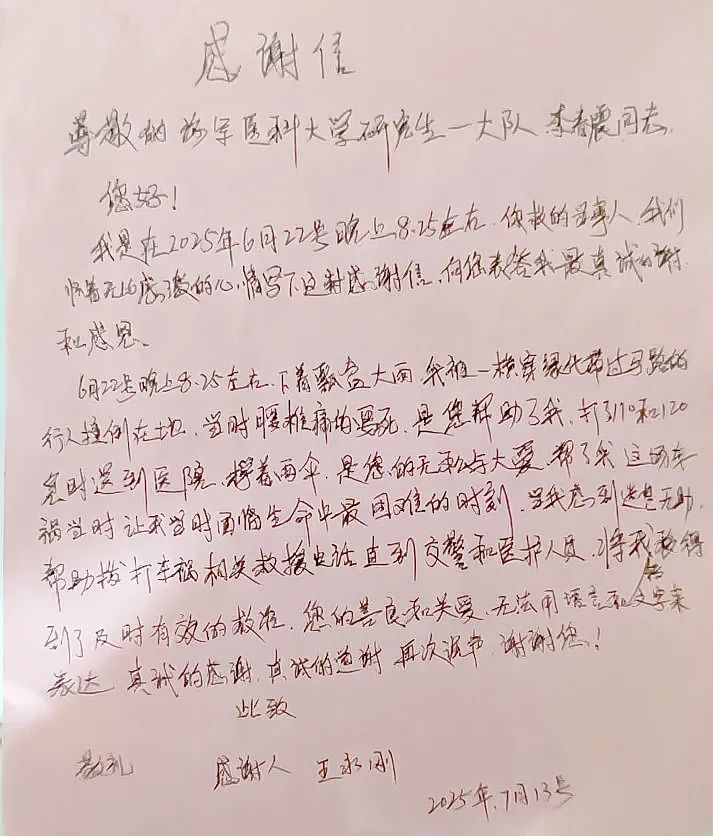 感谢信
尊敬的海军医科大学研究生一大队 李春震同志
您好！
我是在2025年6月22号晚上8.25左右.你救的当事人.我们
怀着无比感激的心情写下这封感谢信.向您表答我最真诚的谢
和感恩。
6月22号晚上8.25左右.下着飘盆大雨 我被一横穿绿化带过马路的
行人撞倒在地.当时腰椎痛的要死.是您帮助了我.打了110和120
急时送到医院.撑着雨伞.是您的无私与大爱.帮了我 这场车
祸当时让我当时面临生命中最困难的时刻.当我感到迷茫无助.
帮助拨打车祸相关救援电话直到交警和医护人员.将我救得
到了及时有效的救治.您的善良和关爱.无法用语言和文字来
表达 真诚的感谢.真诚的道谢 再次说声.谢谢您！
此致
敬礼 感谢人 王永刚
2025年.7月13号